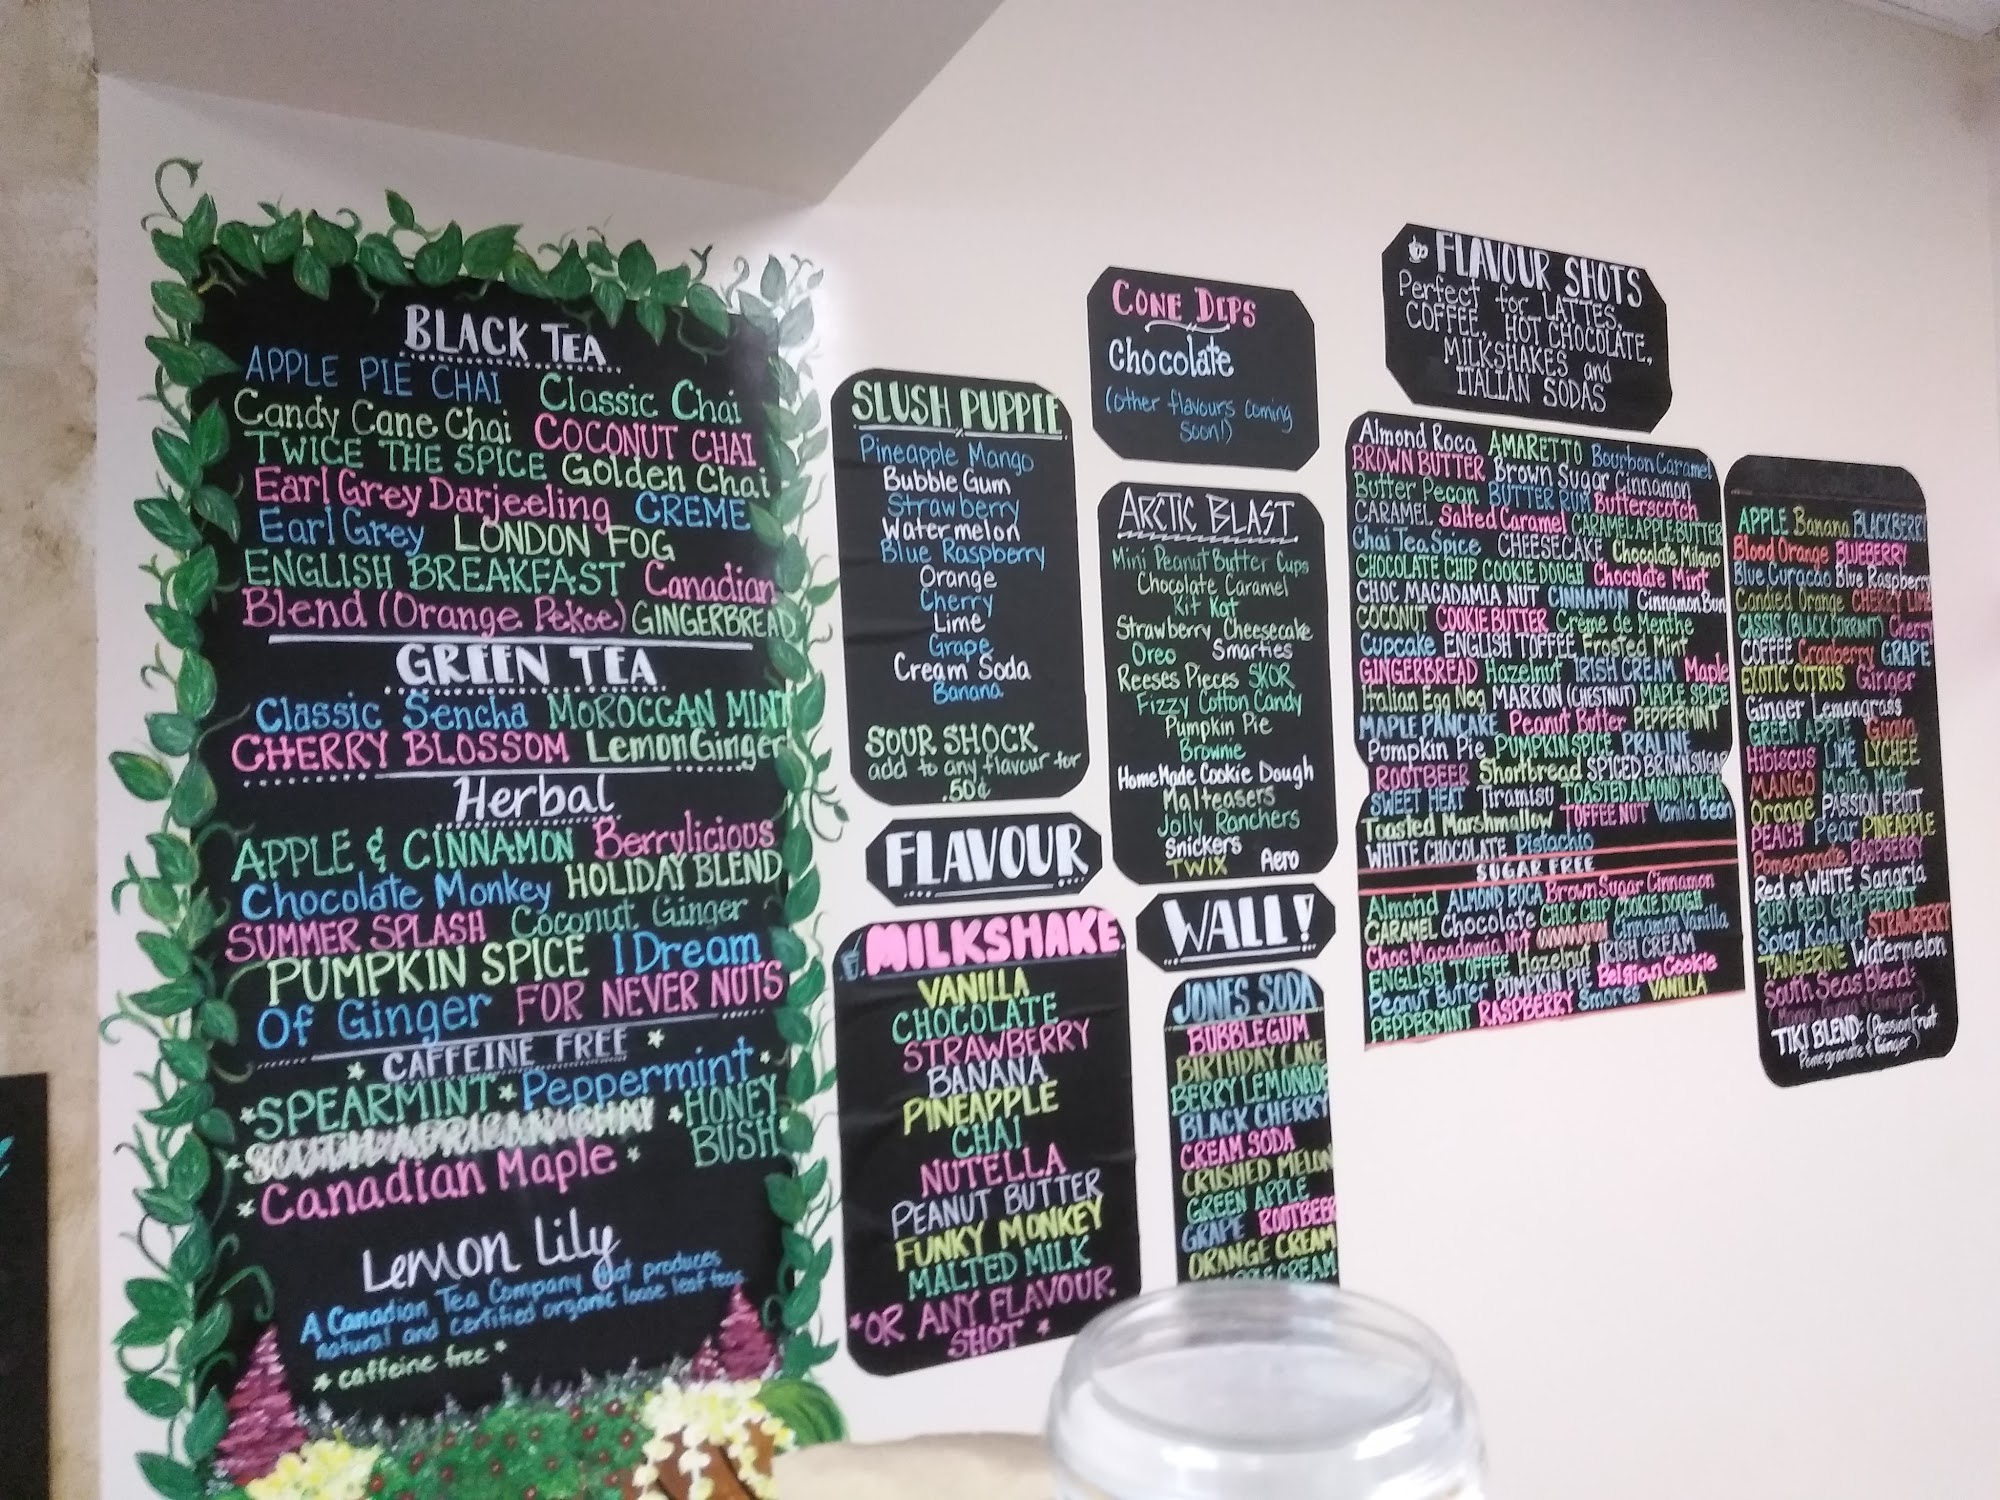 BLACK TEA
APPLE PIE CHAI Classic Chai
Candy Cane Chai COCONUT CHAI
TWICE THE SPICE Golden Chai
Earl Grey Darjeeling CREME
Earl Grey LONDON FOG
ENGLISH BREAKFAST Canadian
Blend (Orange Pekoe) GINGERBREAD
GREEN TEA
Classic Sencha MOROCCAN MINT
CHERRY BLOSSOM Lemon Ginger
Herbal
APPLE & CINNAMON Berrylicious
Chocolate Monkey HOLIDAY BLEND
SUMMER SPLASH Coconut Ginger
PUMPKIN SPICE I Dream
Of Ginger FOR NEVER NUTS
CAFFEINE FREE
SPEARMINT Peppermint
HONEY
BUSH
Canadian Maple
Lemon Lily
A Canadian Tea Company that produces
natural and certified organic loose leaf teas
* caffeine free *
SLUSH PUPPIE
Pineapple Mango
Bubble Gum
Strawberry
Watermelon
Blue Raspberry
Orange
Cherry
Lime
Grape
Cream Soda
Banana
SOUR SHOCK
add to any flavour for
.50¢
FLAVOUR
MILKSHAKE
VANILLA
CHOCOLATE
STRAWBERRY
BANANA
PINEAPPLE
CHAI
NUTELLA
PEANUT BUTTER
FUNKY MONKEY
MALTED MILK
*OR ANY FLAVOUR
SHOT *
CONE DIPS
Chocolate
(other flavours coming
soon!)
ARCTIC BLAST
Mini Peanut Butter Cups
Chocolate Caramel
Kit Kat
Strawberry Cheesecake
Oreo Smarties
Reeses Pieces SKOR
Fizzy Cotton Candy
Pumpkin Pie
Brownie
HomeMade Cookie Dough
Malteasers
Jolly Ranchers
Snickers
TWIX Aero
WALL!
JONES SODA
BUBBLEGUM
BIRTHDAY CAKE
BERRY LEMONADE
BLACK CHERRY
CREAM SODA
CRUSHED MELON
GREEN APPLE
GRAPE ROOTBEER
ORANGE CREAM
CREAM
FLAVOUR SHOTS
Perfect for LATTES,
COFFEE, HOT CHOCOLATE,
MILKSHAKES and
ITALIAN SODAS
Almond Roca AMARETTO Bourbon Caramel
BROWN BUTTER Brown Sugar Cinnamon
Butter Pecan BUTTER RUM Butterscotch
CARAMEL Salted Caramel CARAMEL·APPLE·BUTTER
Chai Tea Spice CHEESECAKE Chocolate Milano
CHOCOLATE CHIP COOKIE DOUGH Chocolate Mint
CHOC MACADAMIA NUT CINNAMON Cinnamon Bun
COCONUT COOKIE BUTTER Crème de Menthe
Cupcake ENGLISH TOFFEE Frosted Mint
GINGERBREAD Hazelnut IRISH CREAM Maple
Italian Egg Nog MARRON (CHESTNUT) MAPLE SPICE
MAPLE PANCAKE Peanut Butter PEPPERMINT
Pumpkin Pie PUMPKIN SPICE PRALINE
ROOTBEER Shortbread SPICED BROWN SUGAR
SWEET HEAT Tiramisu TOASTED ALMOND MOCHA
Toasted Marshmallow TOFFEE NUT Vanilla Bean
WHITE CHOCOLATE Pistachio
SUGAR FREE
Almond ALMOND ROCA Brown Sugar Cinnamon
CARAMEL Chocolate CHOC CHIP COOKIE DOUGH
Choc Macadamia Nut Cinnamon Vanilla
ENGLISH TOFFEE Hazelnut IRISH CREAM
Peanut Butter PUMPKIN PIE Belgian Cookie
PEPPERMINT RASPBERRY Smores VANILLA
APPLE Banana BLACKBERRY
Blood Orange BLUEBERRY
Blue Curacao Blue Raspberry
Candied Orange CHERRY LIME
CASSIS (BLACK CURRANT) Cherry
COFFEE Cranberry GRAPE
EXOTIC CITRUS Ginger
Ginger Lemongrass
GREEN APPLE Guava
Hibiscus LIME LYCHEE
MANGO Mojito Mint
Orange PASSION FRUIT
PEACH Pear PINEAPPLE
Pomegranate RASPBERRY
Red or WHITE Sangria
RUBY RED GRAPEFRUIT
Spicy Kola Nut STRAWBERRY
TANGERINE Watermelon
South Seas Blend:
TIKI BLEND: (Passion Fruit
Pomegranate & Ginger)